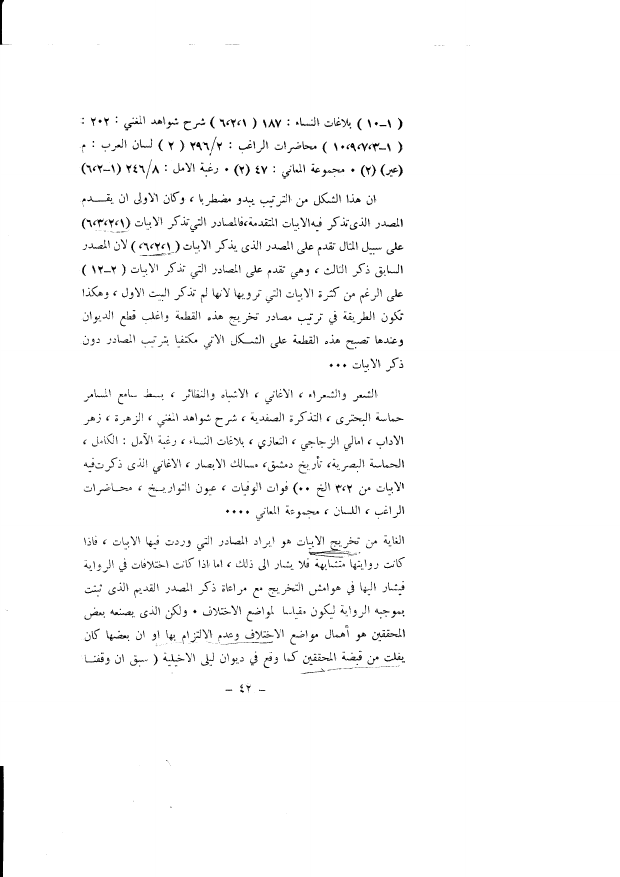 ( ١–١٠ ) بلاغات النساء : ١٨٧ ( ٦،٢،١ ) شرح شواهد المغني : ٢٠٢ :
( ١–١٠،٩،٧،٣ ) محاضرات الراغب : ٢٩٦/٢ ( ٢ ) لسان العرب : م
(عير) (٢) ٠ مجموعة المعاني : ٤٧ (٢) ٠ رغبة الامل : ٢٤٦/٨ (١–٦،٢)
ان هذا الشكل من الترتيب يبدو مضطربا ، وكان الاولى ان يقـدم
المصدر الذى تذكر فيه الابيات المتقدمة، فالمصادر التي تذكر الابيات (٦،٣،٢،١)
على سبيل المثال تقدم على المصدر الذى يذكر الابيات (٦،٢،١) لأن المصدر
السابق ذكر الثالث ، وهي تقدم على المصادر التي تذكر الابيات ( ٢–١٢ )
على الرغم من كثرة الابيات التي ترويها لانها لم تذكر البيت الاول ، وهكذا
تكون الطريقة في ترتيب مصادر تخريج هذه القطعة واغلب قطع الديوان
وعندها تصبح هذه القطعة على الشكل الاتي مكتفيا بترتيب المصادر دون
ذكر الابيات ٠٠٠
الشعر والشعراء ، الاغاني ، الاشباه والنظائر ، بسط سامع المسامر
حماسة البحترى ، التذكرة الصفدية ، شرح شواهد المغني ، الزهرة ، زهر
الاداب ، امالي الزجاجي ، التعازي ، بلاغات النساء ، رغبة الأمل : الكامل ،
الحماسة البصرية، تأريخ دمشق، مسالك الابصار ، الاغاني الذى ذكرت فيه
الابيات من ٣،٢ الخ ٠٠) فوات الوفيات ، عيون التواريـخ ، محـاضرات
الراغب ، اللسان ، مجموعة المعاني ٠٠٠٠
الغاية من تخريج الابيات هو ايراد المصادر التي وردت فيها الابيات ، فاذا
كانت روايتها متشابهة فلا يشار الى ذلك ، اما اذا كانت اختلافات في الرواية
فيشار اليها في هوامش التخريج مع مراعاة ذكر المصدر القديم الذى ثبتت
بموجبه الرواية ليكون مقياسا لمواضع الاختلاف ٠ ولكن الذى يصنعه بعض
المحققين هو أهمال مواضع الاختلاف وعدم الالتزام بها او ان بعضها كان
يفلت من قبضة المحققين كما وقع في ديوان ليلى الاخيلية ( سبق ان وقفنـا
– ٤٢ –